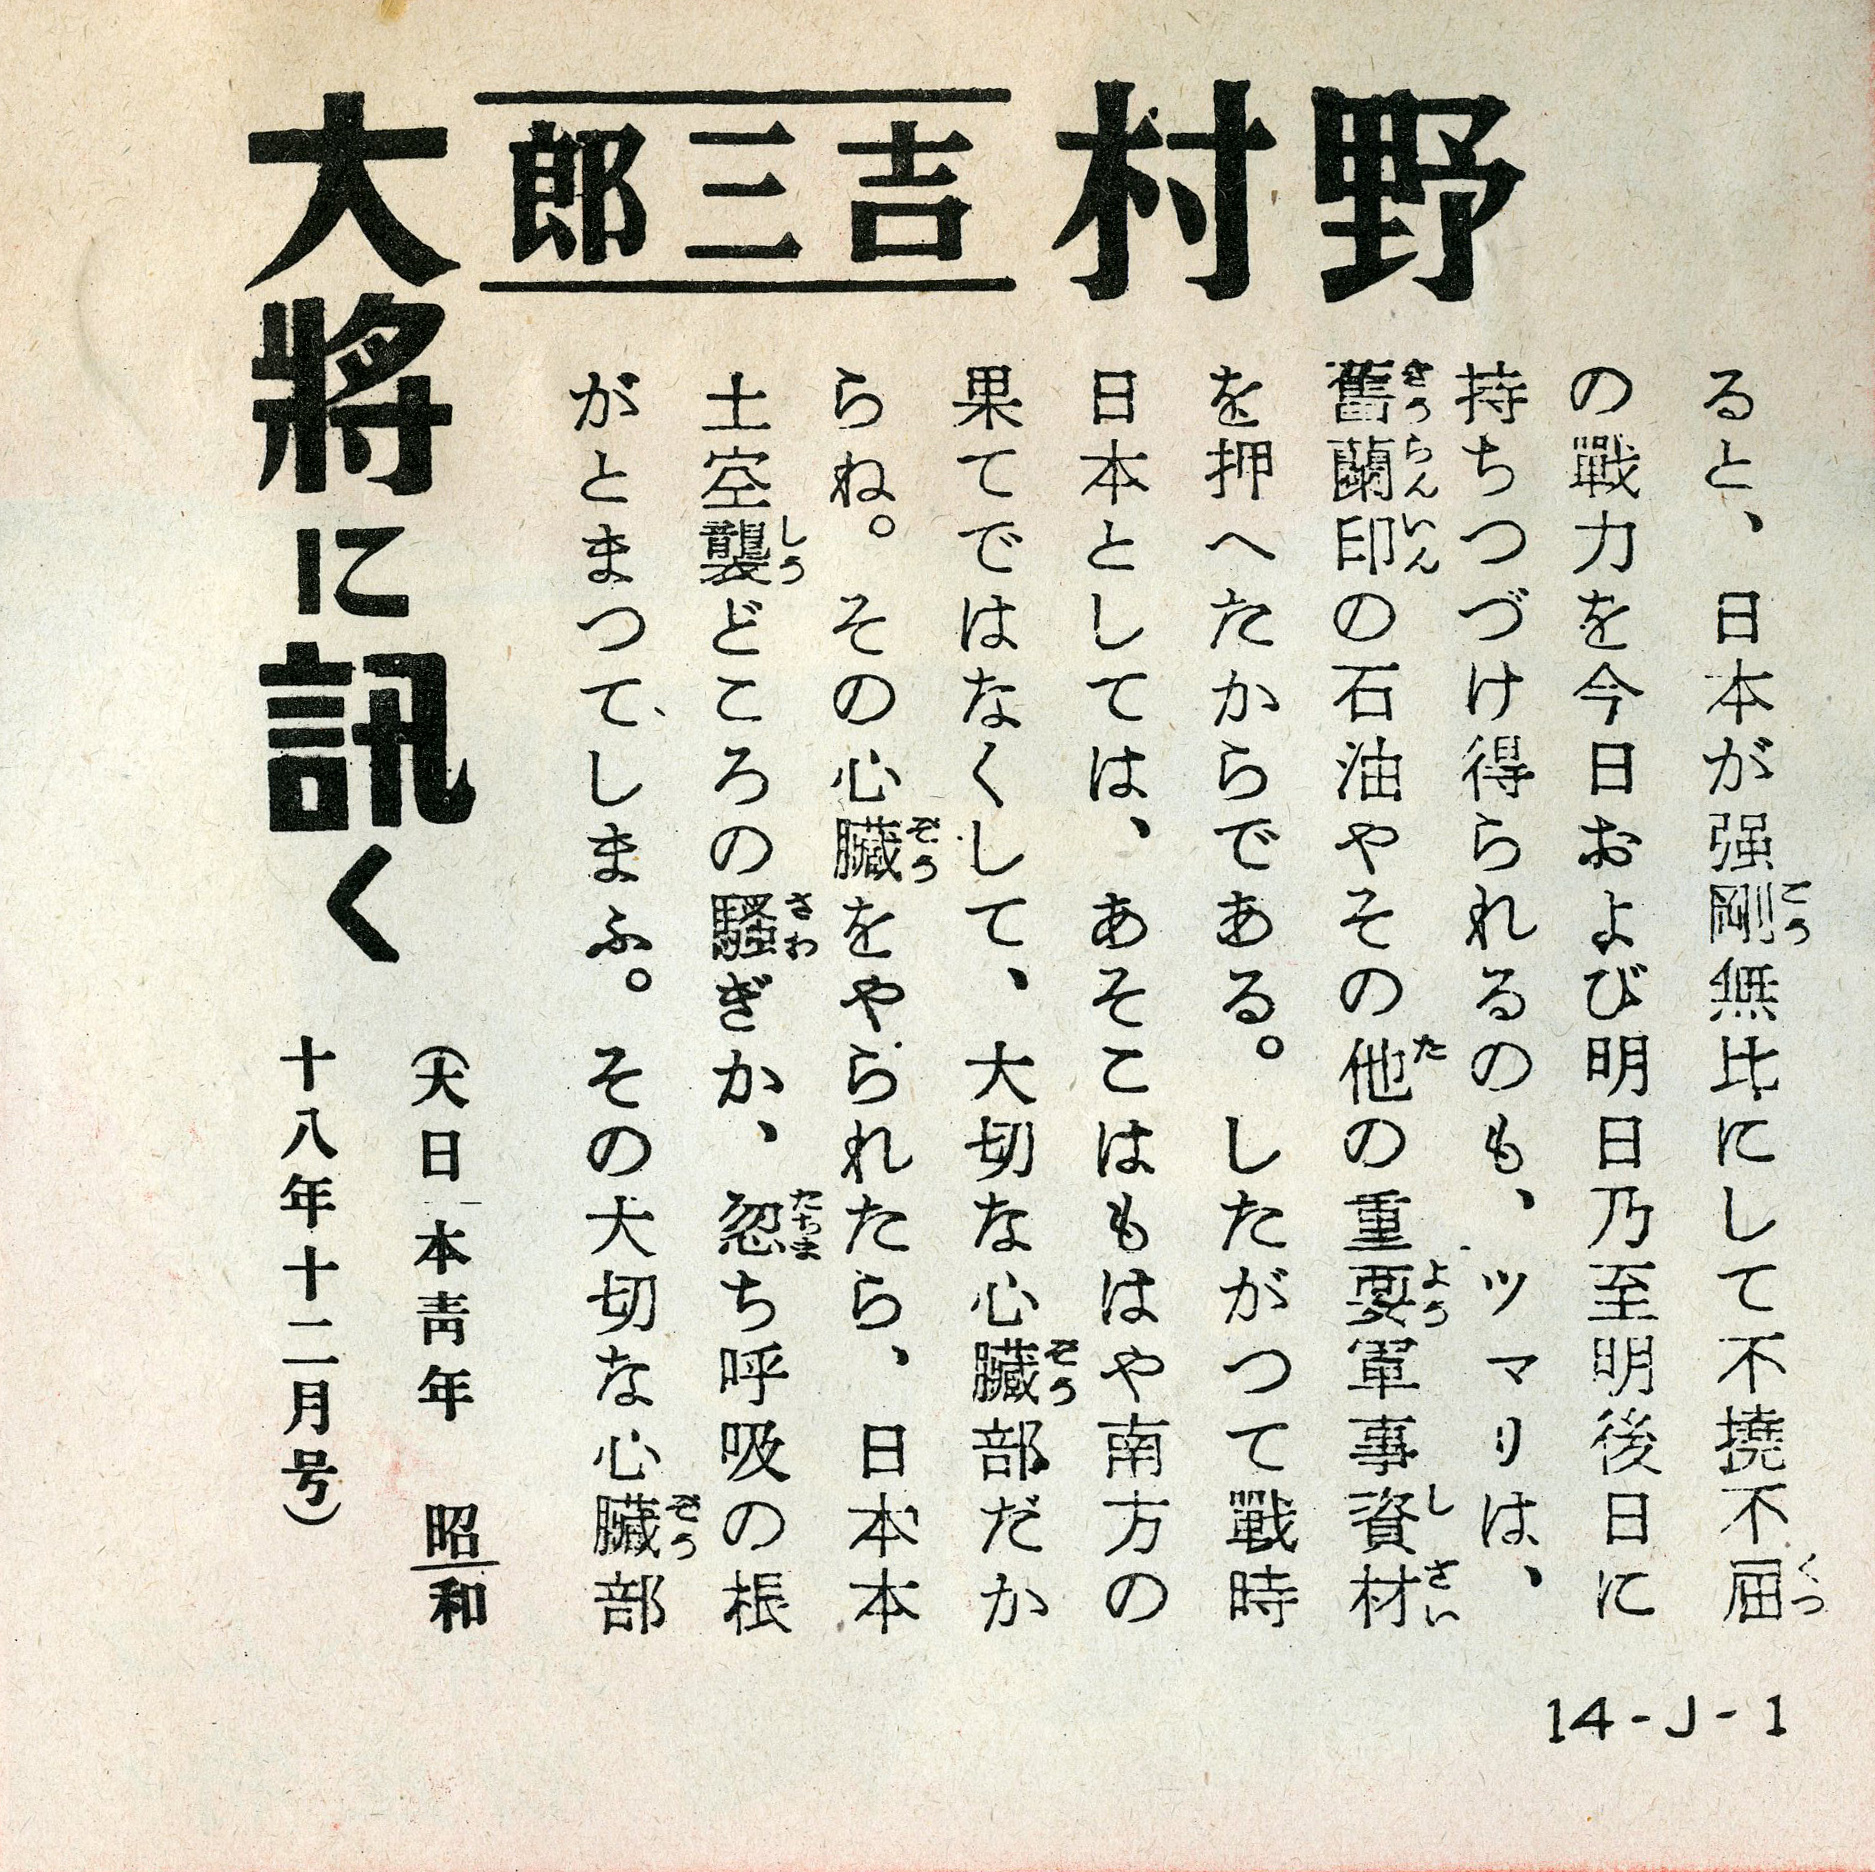 野村吉三郎
大將に訊く
（大日本靑年 昭和
十八年十二月号）
ると、日本が强剛無比にして不撓不屈
の戰力を今日および明日乃至明後日に
持ちつづけ得られるのも、ツマリは、
舊蘭印の石油やその他の重要軍事資材
を押へたからである。したがつて戰時
日本としては、あそこはもはや南方の
果てではなくして、大切な心臟部だか
らね。その心臟をやられたら、日本本
土空襲どころの騷ぎか、忽ち呼吸の根
がとまつてしまふ。その大切な心臟部
14-J-1